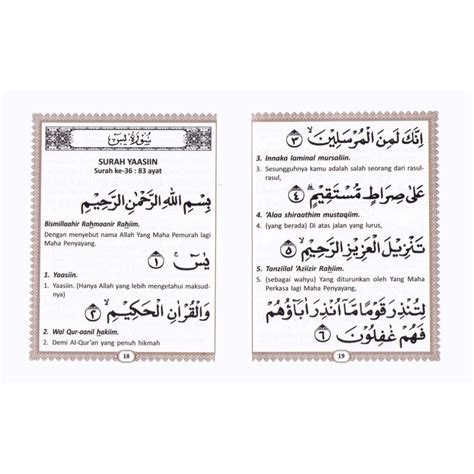 سورة يس
SURAH YAASIIN
Surah ke-36 : 83 ayat
بِسْمِ اللهِ الرَّحْمٰنِ الرَّحِيْمِ
Bismillaahir Rahmaanir Rahiim.
Dengan menyebut nama Allah Yang Maha Pemurah lagi
Maha Penyayang.
يٰسۤ ۚ ١
1. Yaasiin.
1. Yaasiin. (Hanya Allah yang lebih mengetahui maksud-
nya)
وَالْقُرْاٰنِ الْحَكِيْمِ ۙ ٢
2. Wal Qur-aanil hakiim.
2. Demi Al-Qur'an yang penuh hikmah
18
اِنَّكَ لَمِنَ الْمُرْسَلِيْنَ ۙ ٣
3. Innaka laminal mursaliin.
3. Sesungguhnya kamu adalah salah seorang dari rasul-
rasul,
عَلٰى صِرَاطٍ مُّسْتَقِيْمٍ ۗ ٤
4. 'Alaa shiraathim mustaqiim.
4. (yang berada) Di atas jalan yang lurus,
تَنْزِيْلَ الْعَزِيْزِ الرَّحِيْمِ ۙ ٥
5. Tanziilal 'Aziizir Rahiim.
5. (sebagai wahyu) Yang diturunkan oleh Yang Maha
Perkasa lagi Maha Penyayang,
لِتُنْذِرَ قَوْمًا مَّآ اُنْذِرَ اٰبَاۤؤُهُمْ
فَهُمْ غٰفِلُوْنَ ٦
19